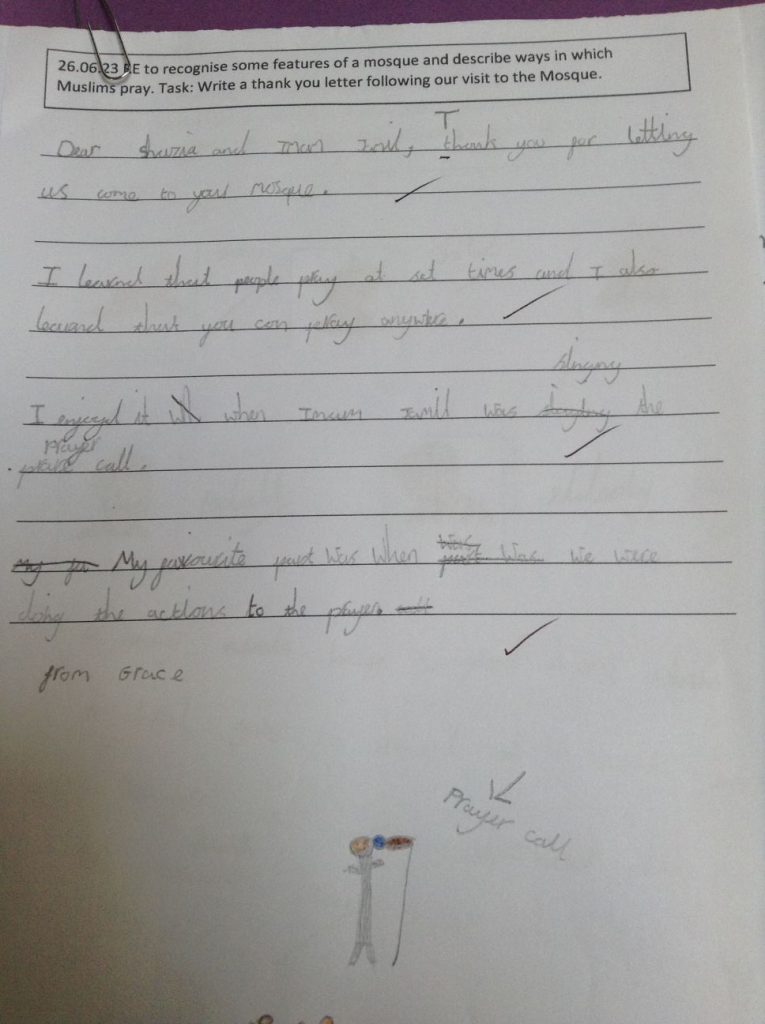 26.06.23 RE to recognise some features of a mosque and describe ways in which
Muslims pray. Task: Write a thank you letter following our visit to the Mosque.
T
Dear and thank you for letting
us come to your mosque.
I learnd that people pray at set times and I also
learnd that you can pray anywere.
singing
I enjoyed it when was the
Prayer
call.
My favourite part was when we were
doing the actions to the prayer.
from Grace
Prayer call